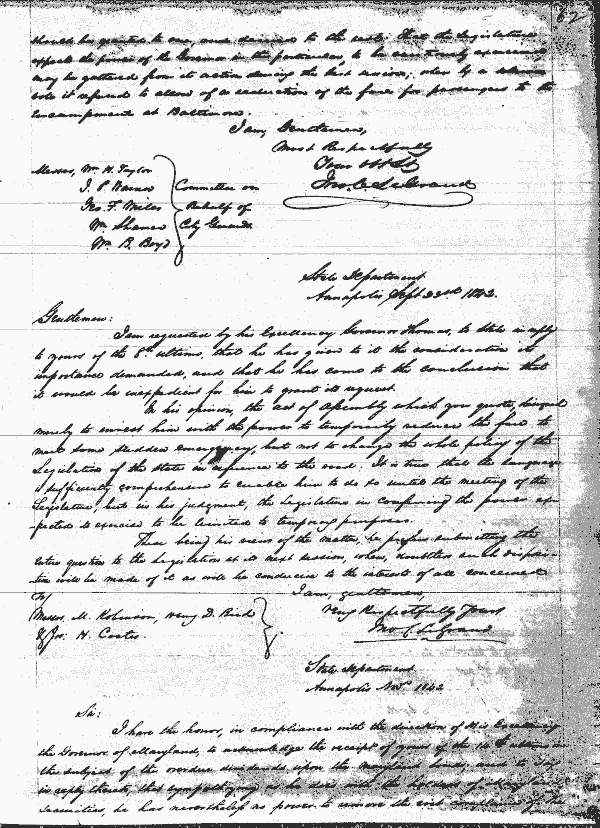 62
should be granted to one, and denied to the rest. That the Legislature
expects the power of the Governor in this particular, to be cautiously exercised,
may be gathered from its action during the last session, when by a
vote it refused to allow of a reduction of the fare for passengers to the
encampment at Baltimore.
I am, Gentlemen,
Most Respectfully
Your Obt St
Jno. C. LeGrand
Messrs. Wm. H. Taylor
J. P. Warner
Jas. F. Miles
Wm. Shaner
Wm. B. Boyd
Committee on
Behalf of
City Guards.
State Department
Annapolis, Sept 22nd 1842.
Gentlemen:
I am requested by his Excellency Governor Thomas, to state in reply
to yours of the 8th ultimo, that he has given to it the consideration its
importance demanded, and that he has come to the conclusion that
it would be inexpedient for him to grant its request.
In his opinion, the act of Assembly which you quote, designed
merely to invest him with the power to temporarily reduce the fare to
meet some sudden emergency, but not to change the whole policy of the
Legislature of the State in reference to the road. It is true that the language
is sufficiently comprehensive to enable him to do so until the meeting of the
Legislature, but in his judgment, the Legislature in conferring the power ex-
pected its exercise to be limited to temporary purposes.
These being his views of the matter, he prefers submitting the
entire question to the Legislature at its next session, when, doubtless such disposi-
tion will be made of it as will be conducive to the interests of all concerned
I am, gentlemen,
Very Respectfully Yours
Jno. C. LeGrand
To
Messrs. M. Robinson, D. Bird
& Jos. H. Coates.
State Department
Annapolis Nov. 1842
Sir:
I have the honor, in compliance with the direction of His Excellency
the Governor of Maryland, to acknowledge the receipt of yours of the 14th ultimo on
the subject of the overdue dividends upon the Maryland bonds, and to say
in reply thereto, that sympathizing as he does with the holders of
securities, he has nevertheless no power to remove the evil complained of. The